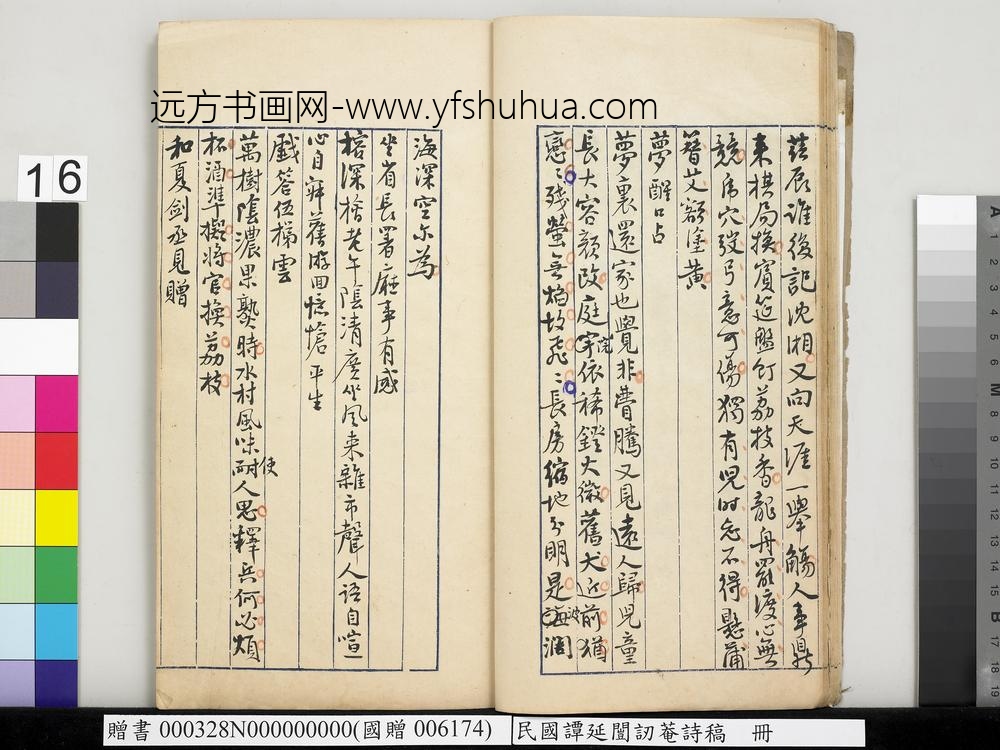 兹辰誰後記沈湘又向天涯一舉觴人事鼎
來棋局換賓筵盤飣荔枝香龍舟罷渡心無
競虎穴彎弓意可傷獨有兒時忘不得懸蒲
簪艾額塗黃
夢醒口占
夢裏還家也覺非瞢騰又見遠人歸兒童
長大容顏改庭宇依稀鐙火微舊犬近前猶
院
戀戀殘螢無焰故飛飛長房縮地分明是海濶
波
海深空尔為
坐省長署廳事有感
榕深檜老午陰清廣坐風來雜市聲人語自喧
心自寂舊游回憶愴平生
戲答伍梯雲
萬樹陰濃果熟時水村風味耐人思釋兵何必煩
使
杯酒準擬將官換荔枝
和夏劍丞見贈
远方书画网-www.yfshuhua.com
16
贈書 000328N000000000(國贈 006174)
民國譚延闓訒菴詩稿 冊
A 1 2 3 4 5 6 M 8 9 10 11 12 13 14 15 B 17 18 19